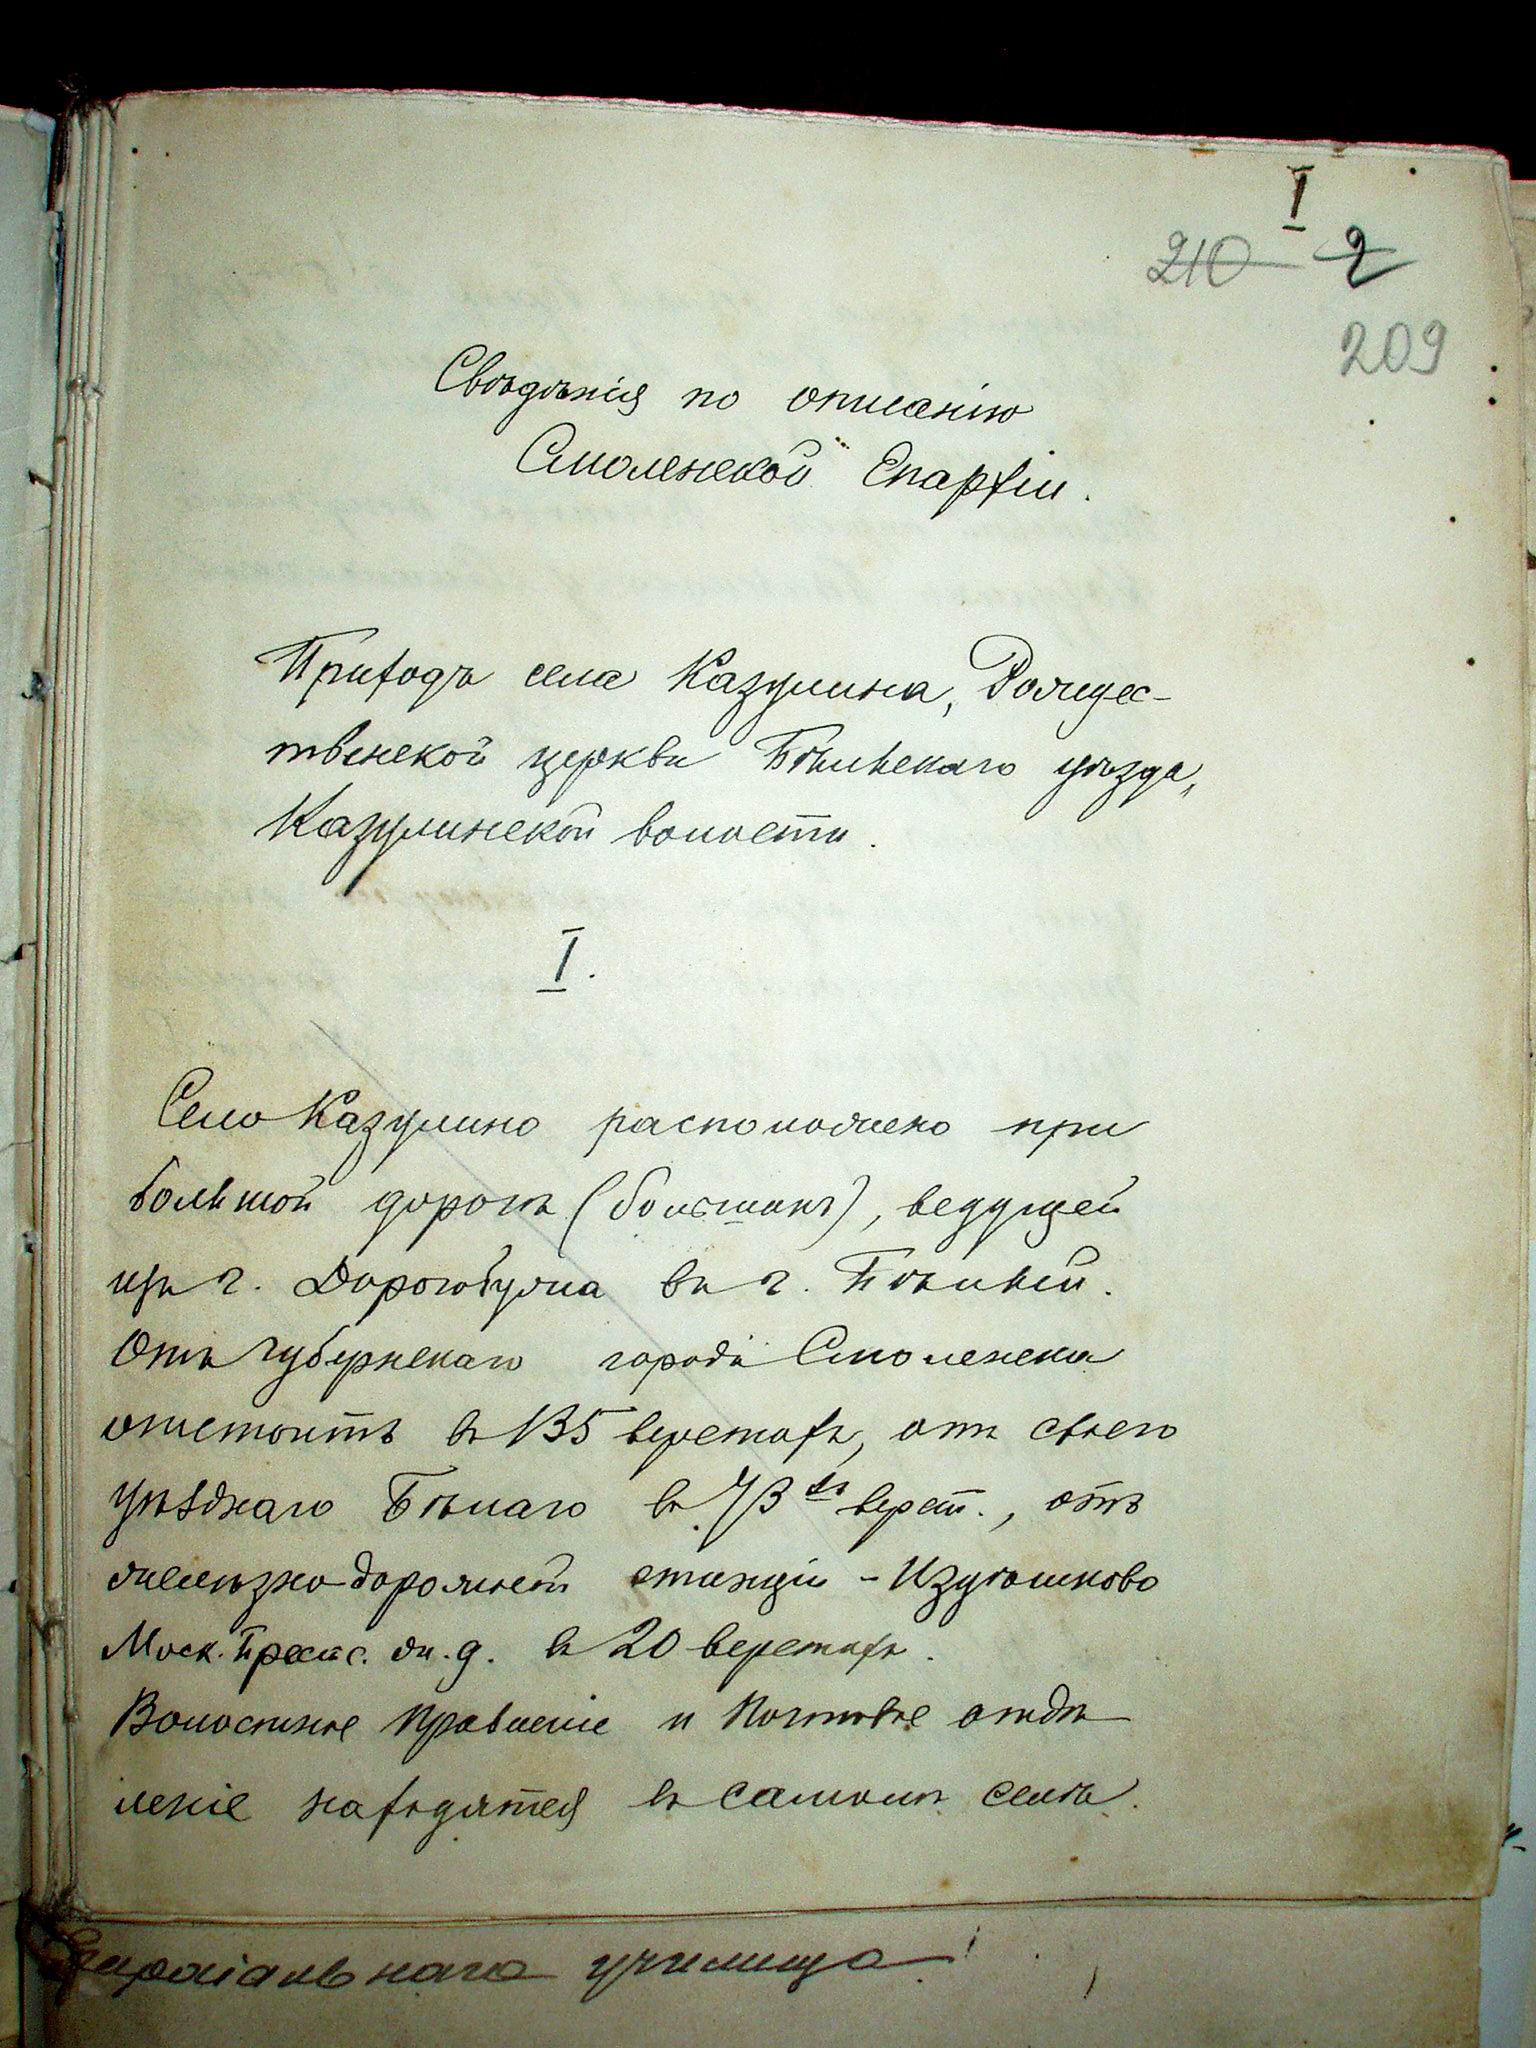 I
210 2
209
Свѣдѣнія по описанію
Смоленской Епархіи.
Приходъ села Казулина, Рождес-
твенской церкви Бѣльскаго уѣзда,
Казулинской волости.
I.
Село Казулино расположено при
большой дорогѣ (большакъ), ведущей
изъ г. Дорогобужа въ г. Бѣлый.
Отъ губернскаго города Смоленска
отстоитъ въ 135 верстахъ, отъ своего
уѣзднаго Бѣлаго въ 73хъ верст., отъ
желѣзно-дорожной станціи - Издѣшково
Моск. Брестс. ж. д. въ 20 верстахъ.
Волостное правленіе и Почтовое отдѣ
леніе находятся въ самомъ селѣ.
училища